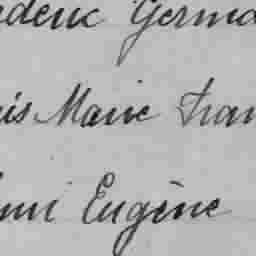 ederic Germa
is Marie Fran
nri Eugène